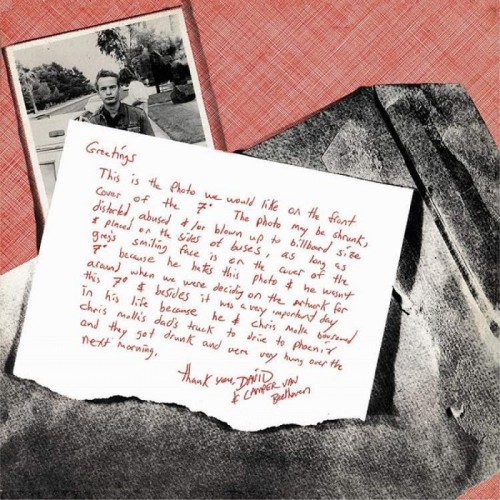 Greetings
This is the Photo we would like on the front
cover of the 7" The photo may be shrunk,
distorted abused &/or blown up to billboard size
& placed on the sides of buses, as long as
greg's smiling face is on the cover of the
7" because he hates this photo & he wasn't
around when we were deciding on the artwork for
this 7" & besides it was a very important day
in his life because he & chris molla borrowed
chris molla's dad's truck to drive to Phoenix
and they got drunk and were very hung over the
next morning.
Thank you, DAVID
& CAMPER VAN
Beethoven